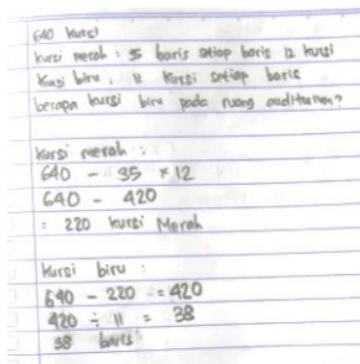 640 kursi
kursi merah : 35 baris setiap baris 12 kursi
Kursi biru : 11 kursi setiap baris
berapa kursi biru pada ruang auditorium?
Kursi merah :
640 - 35 × 12
640 - 420
= 220 kursi Merah
Kursi biru :
640 - 220 = 420
420 ÷ 11 = 38
38 baris